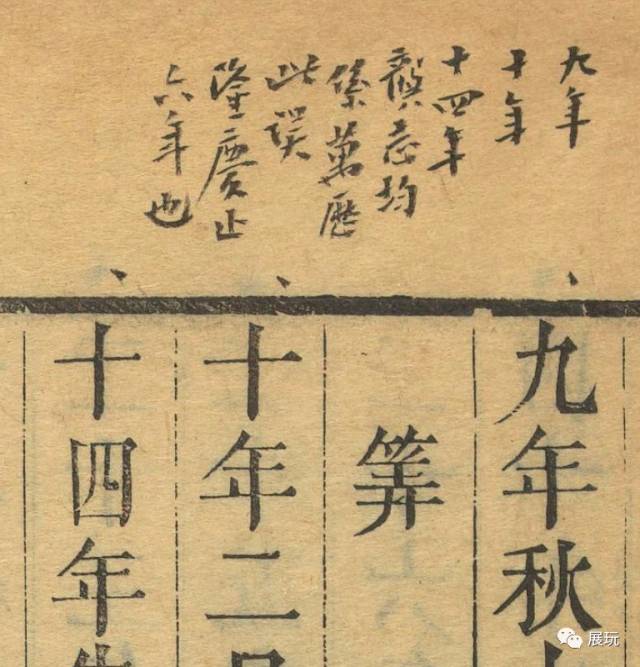 九年
十年
十四年
志均
係萬歷
此誤
隆慶止
六年也
、九年秋
筭
、十年二
、十四年
展玩